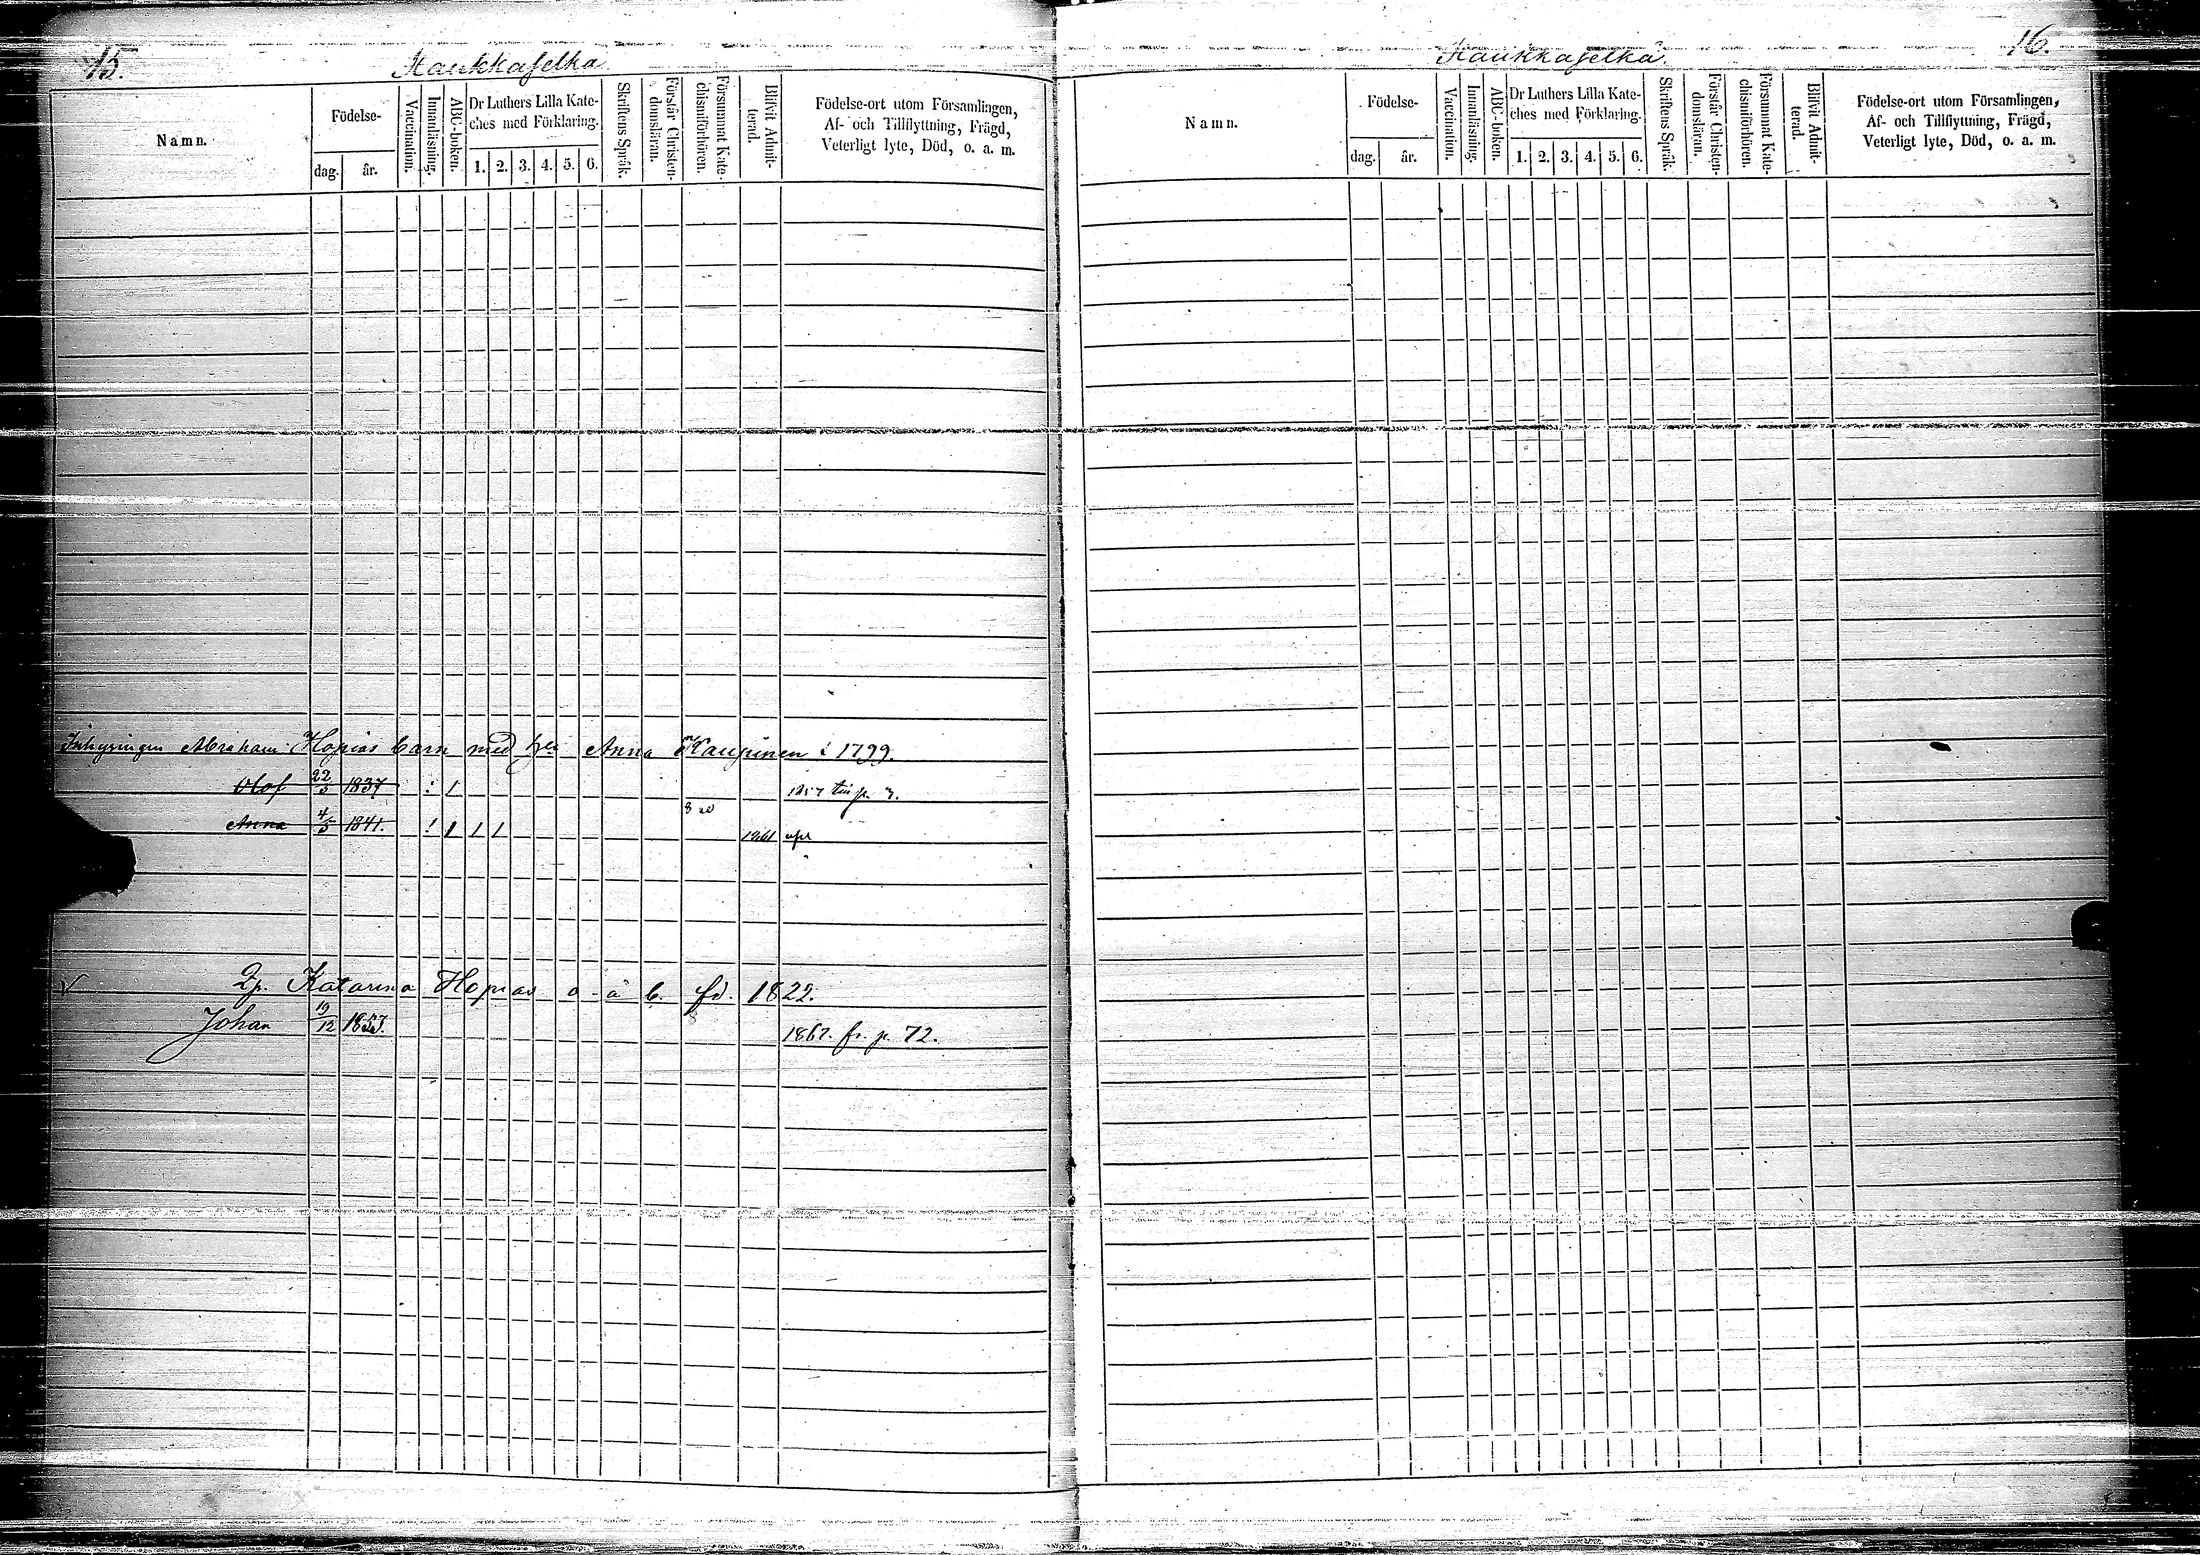 15.
Haukkaselkä
Namn.
Födelse-
dag. år.
Vaccination.
Innanläsning.
ABC-boken.
Dr Luthers Lilla Kate-
ches med Förklaring.
1. 2. 3. 4. 5. 6.
Skriftens Språk.
Förstår Christen-
domsläran.
Försummat Kate-
chismiförhören.
Blifvit Admit-
terad.
Födelse-ort utom Församlingen,
Af- och Tillflyttning, Frägd,
Veterligt lyte, Död, o. a. m.
Inhysingen Abraham Hopias barn med Anna Kaupinen f 1799.
Olof 22/5 1837 : 1 1857 p. 7.
Anna 4/5 1841. ! 1 1 1 1861
v Katarina Hopias o ä b. fd. 1822.
Johan 19/12 1857. 1867. fr. p. 72.
16.
Haukkaselkä
Namn.
Födelse-
dag. år.
Vaccination.
Innanläsning.
ABC-boken.
Dr Luthers Lilla Kate-
ches med Förklaring.
1. 2. 3. 4. 5. 6.
Skriftens Språk.
Förstår Christen-
domsläran.
Försummat Kate-
chismiförhören.
Blifvit Admit-
terad.
Födelse-ort utom Församlingen,
Af- och Tillflyttning, Frägd,
Veterligt lyte, Död, o. a. m.